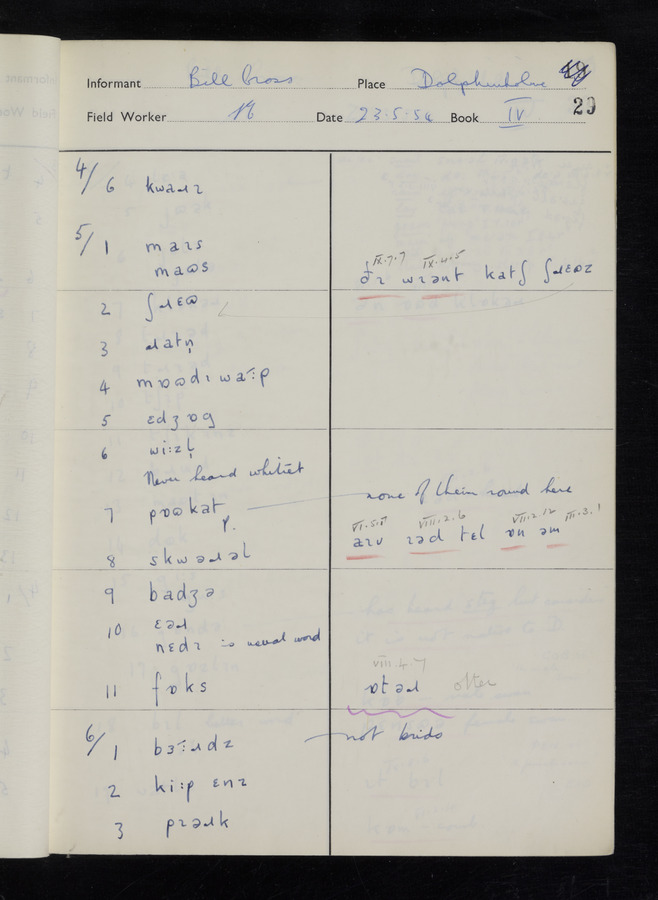 Informant Bill Cross Place Dolphinholme
Field Worker Date 23.5.54 Book IV 29
4/ 6 kwaɹɪz
5/ 1 maɪs
maʊs
IX.7.7 IX.4.5
ðɪ wɪənt katʃ ʃɹɛʊz
2 ʃɹɛʊ
3 ɹatn̩
4 mɒʊdɪwaːp
5 ɛdʒɒg
6 wiːzl̩
Never heard whitret
none of them round here
7 pɒʊkat
p.
VI.5.5 VIII.2.6 VII.2.12 III.3.1
aɪv ɪəd tel ɒn əm
8 skwəɹəl
9 badʒə
10 ɛəɹ
nɛdɪ is usual word
11 fɒks
VIII.4.7
ɒtəɹ otter
6/ 1 bɜːɹdz
not brids
2 kiːp ɛnz
3 pɪəɹk